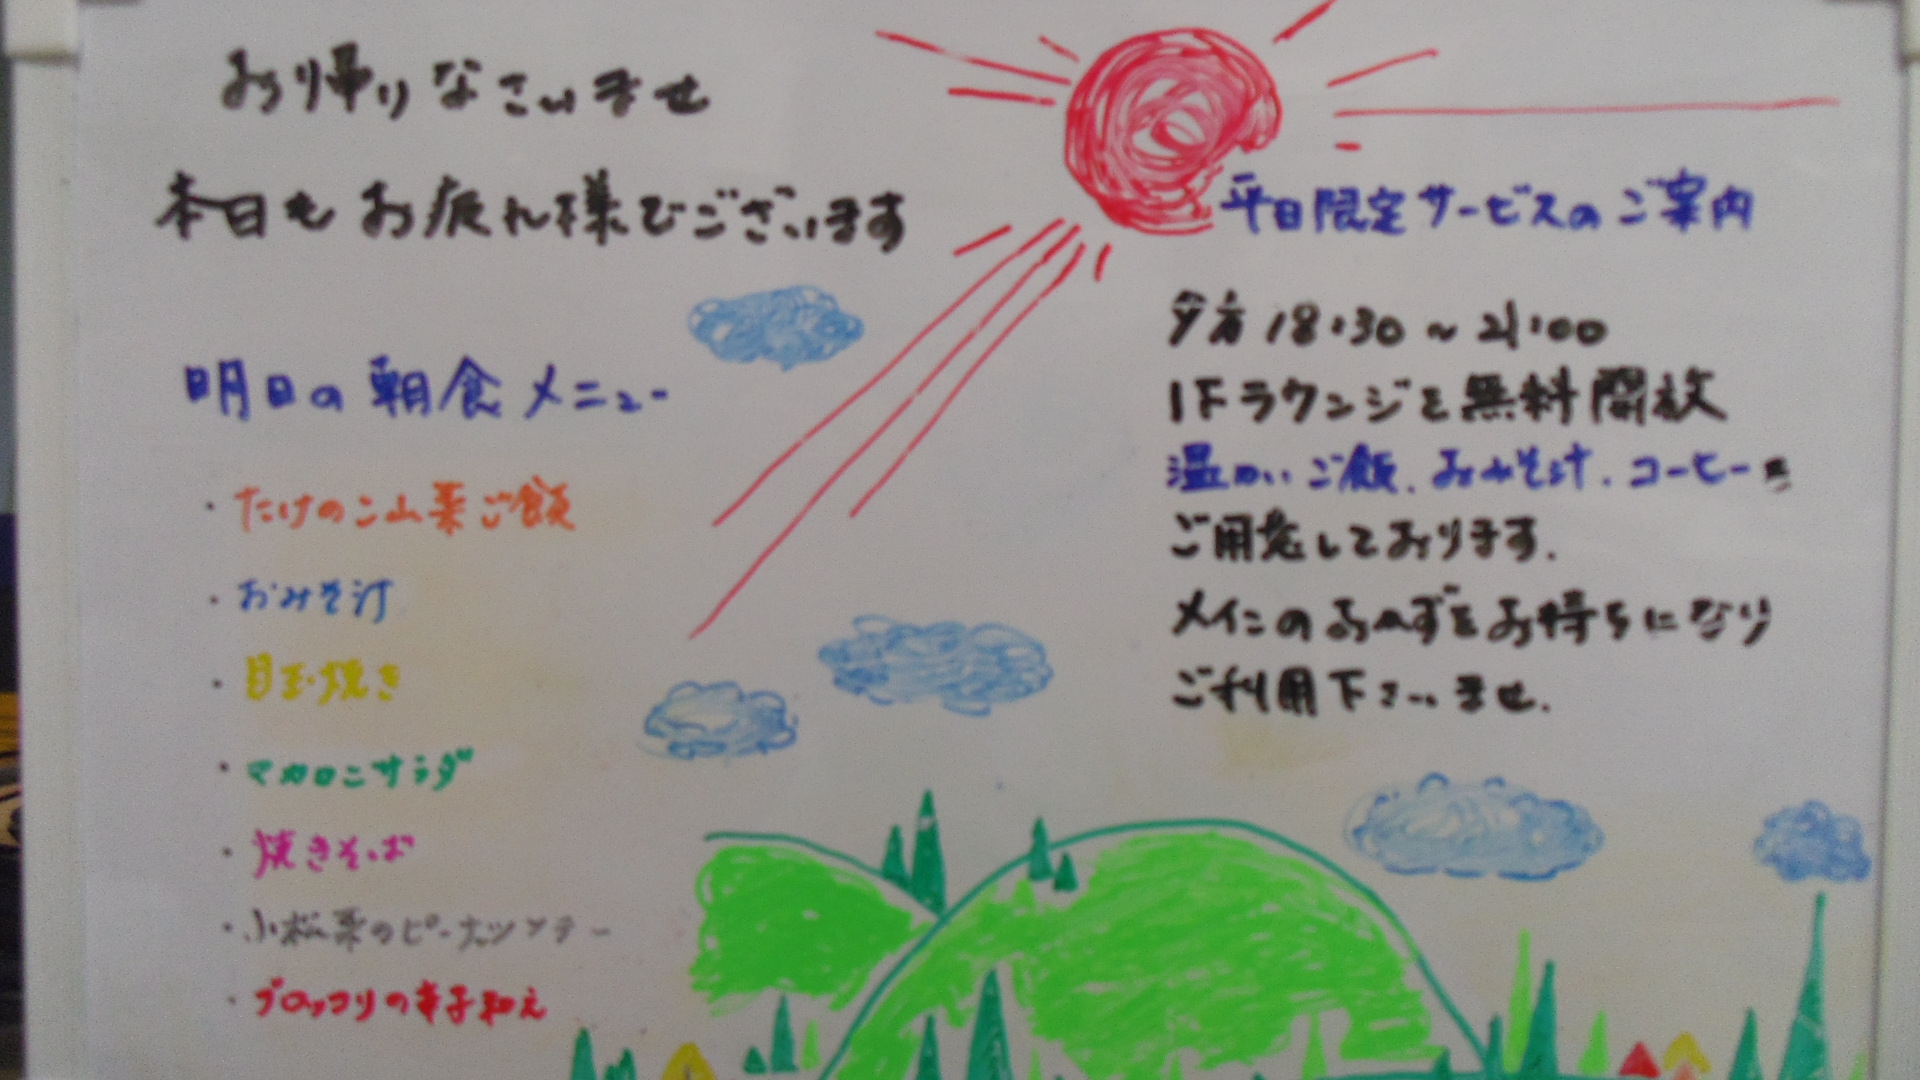 お帰りなさいませ
本日もお疲れ様でございます
明日の朝食メニュー
・たけのこ山菜ご飯
・おみそ汁
・目玉焼き
・マカロニサラダ
・焼きそば
・小松菜のピーナッツソテー
・ブロッコリの辛子和え
平日限定サービスのご案内
夕方18:30～21:00
1Fラウンジを無料開放
温かいご飯、おみそ汁、コーヒーを
ご用意しております。
メインのおかずをお持ちになり
ご利用下さいませ。